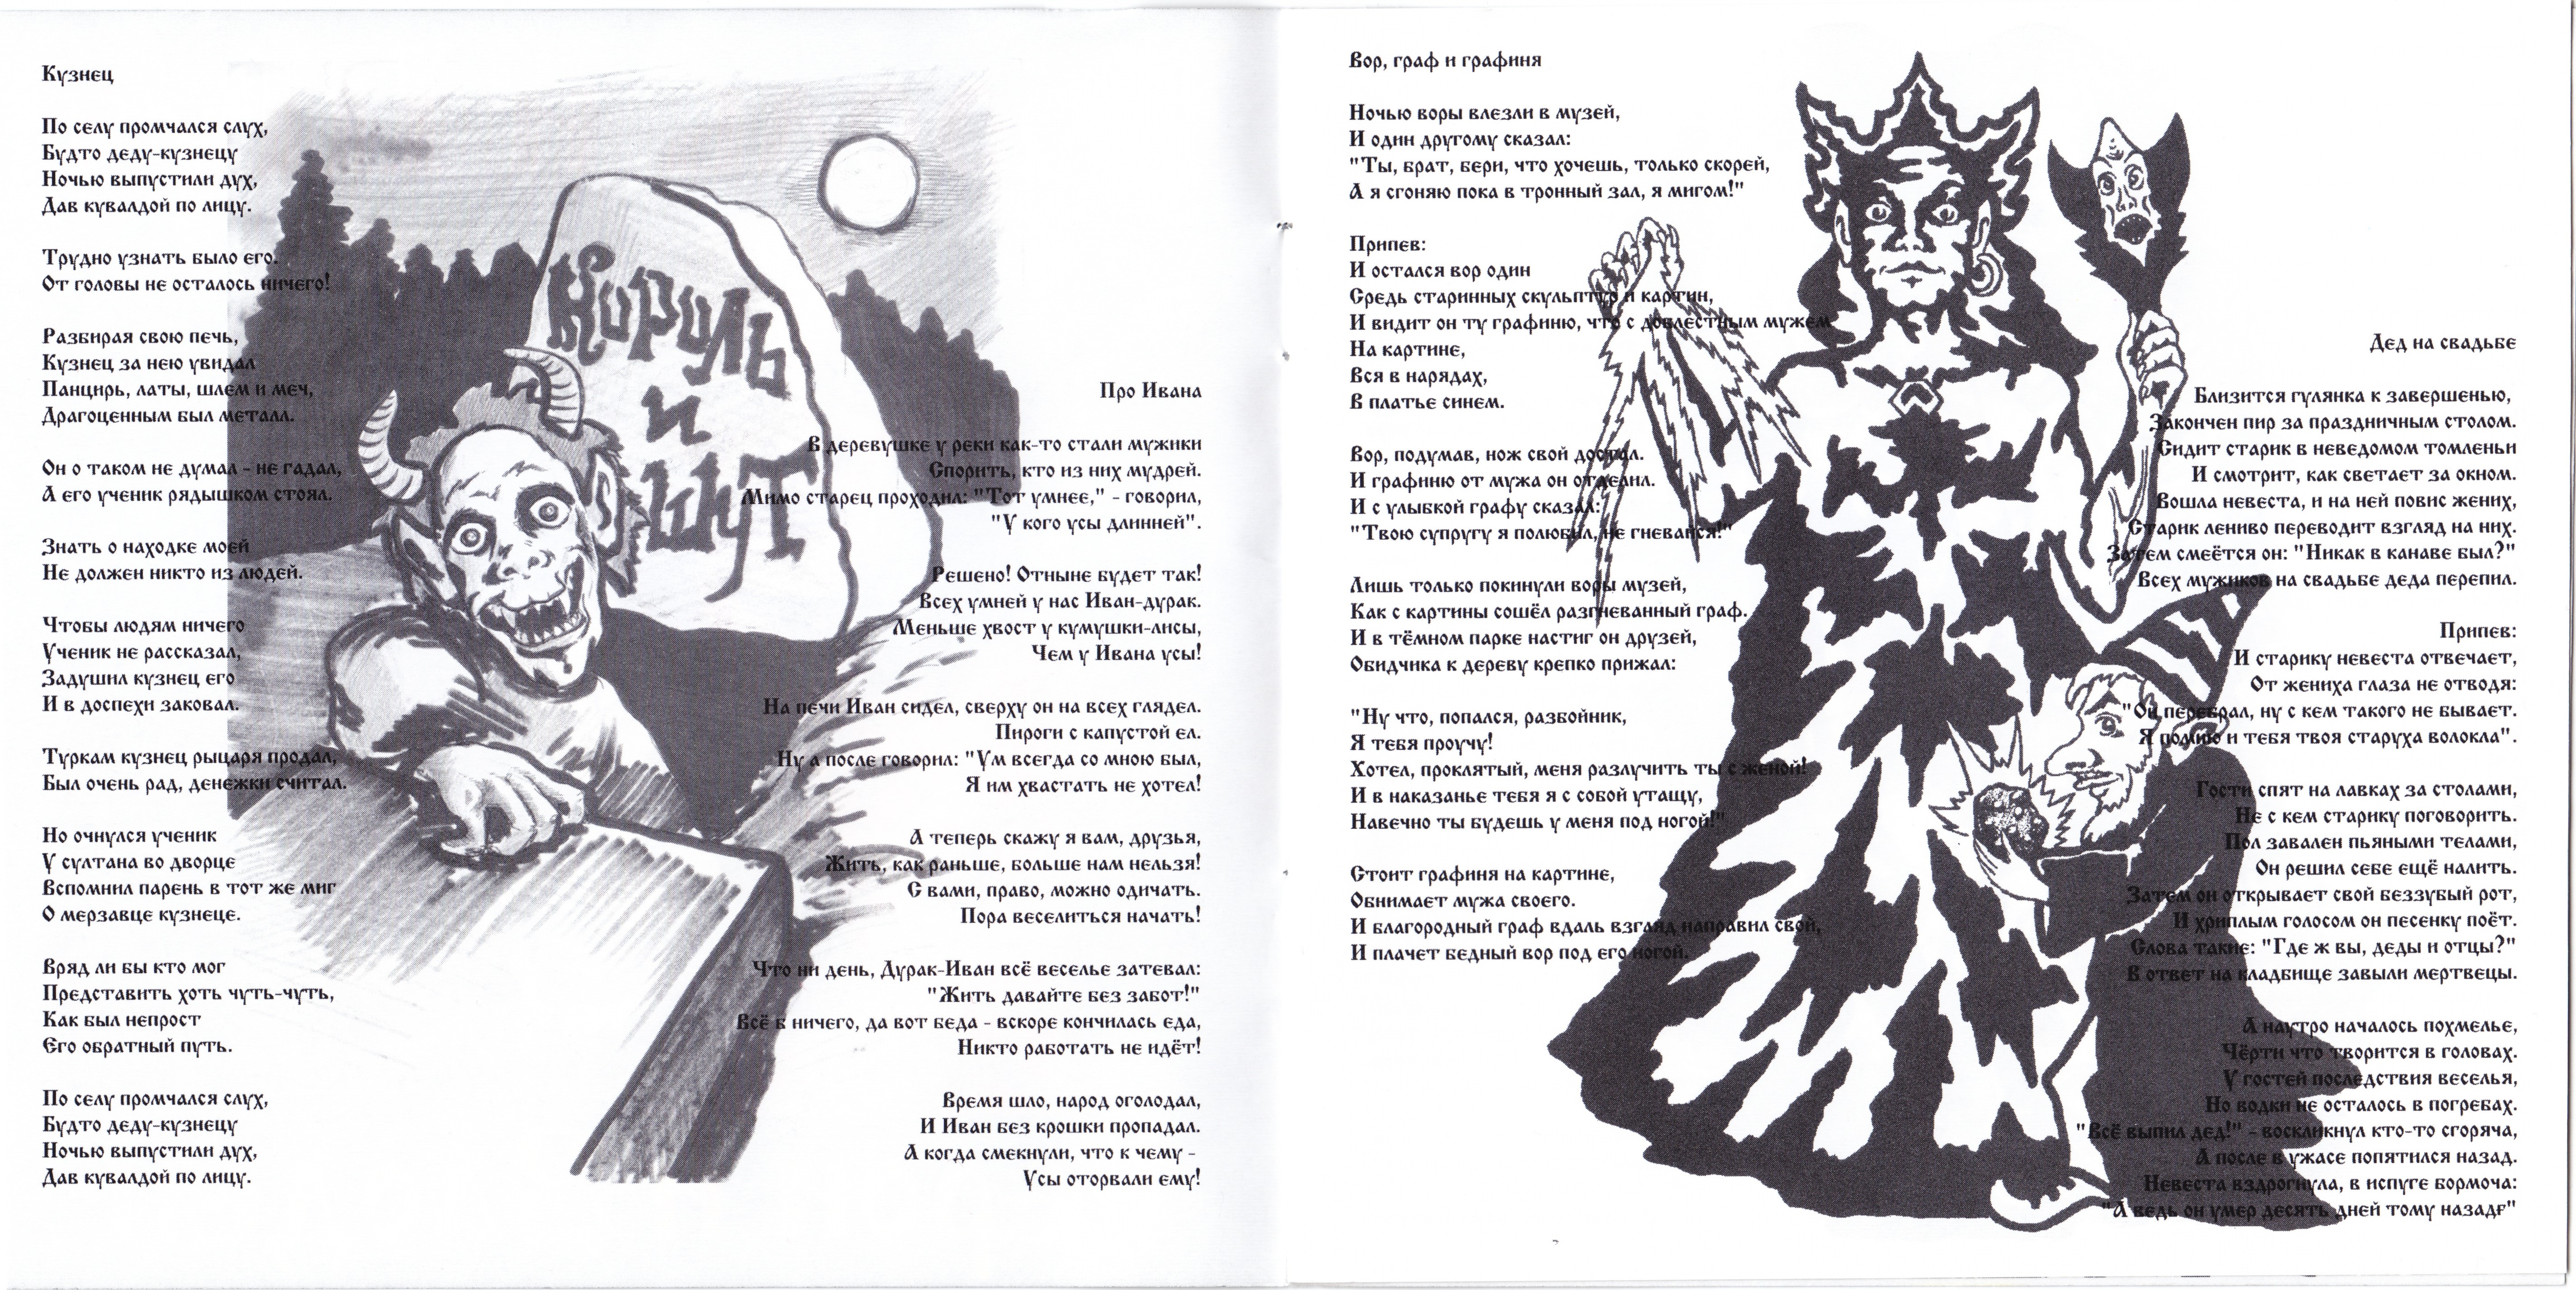 Кузнец
По селу промчался слух,
Будто деду-кузнецу
Ночью выпустили дух,
Дав кувалдой по лицу.
Трудно узнать было его.
От головы не осталось ничего!
Разбирая свою печь,
Кузнец за нею увидал
Панцирь, латы, шлем и меч,
Драгоценным был металл.
Он о таком не думал - не гадал,
А его ученик рядышком стоял.
Знать о находке моей
Не должен никто из людей.
Чтобы людям ничего
Ученик не рассказал,
Задушил кузнец его
И в доспехи заковал.
Туркам кузнец рыцаря продал,
Был очень рад, денежки считал.
Но очнулся ученик
У султана во дворце
Вспомнил парень в тот же миг
О мерзавце кузнеце.
Вряд ли бы кто мог
Представить хоть чуть-чуть,
Как был непрост
Его обратный путь.
По селу промчался слух,
Будто деду-кузнецу
Ночью выпустили дух,
Дав кувалдой по лицу.
Король
и
Шут
Про Ивана
В деревушке у реки как-то стали мужики
Спорить, кто из них мудрей.
Мимо старец проходил: "Тот умнее," - говорил,
"У кого усы длинней".
Решено! Отныне будет так!
Всех умней у нас Иван-дурак.
Меньше хвост у кумушки-лисы,
Чем у Ивана усы!
На печи Иван сидел, сверху он на всех глядел.
Пироги с капустой ел.
Ну а после говорил: "Ум всегда со мною был,
Я им хвастать не хотел!
А теперь скажу я вам, друзья,
Жить, как раньше, больше нам нельзя!
С вами, право, можно одичать.
Пора веселиться начать!
Что ни день, Дурак-Иван всё веселье затевал:
"Жить давайте без забот!"
Всё б ничего, да вот беда - вскоре кончилась еда,
Никто работать не идёт!
Время шло, народ оголодал,
И Иван без крошки пропадал.
А когда смекнули, что к чему -
Усы оторвали ему!
Вор, граф и графиня
Ночью воры влезли в музей,
И один другому сказал:
"Ты, брат, бери, что хочешь, только скорей,
А я сгоняю пока в тронный зал, я мигом!"
Припев:
И остался вор один
Средь старинных скульптур и картин,
И видит он ту графиню, что с доблестным мужем
На картине,
Вся в нарядах,
В платье синем.
Вор, подумав, нож свой достал.
И графиню от мужа он отделил.
И с улыбкой графу сказал:
"Твою супругу я полюбил, не гневайся!"
Лишь только покинули воры музей,
Как с картины сошёл разгневанный граф.
И в тёмном парке настиг он друзей,
Обидчика к дереву крепко прижал:
"Ну что, попался, разбойник,
Я тебя проучу!
Хотел, проклятый, меня разлучить ты с женой!
И в наказанье тебя я с собой утащу,
Навечно ты будешь у меня под ногой!"
Стоит графиня на картине,
Обнимает мужа своего.
И благородный граф вдаль взгляд направил свой,
И плачет бедный вор под его ногой.
Дед на свадьбе
Близится гулянка к завершенью,
Закончен пир за праздничным столом.
Сидит старик в неведомом томленьи
И смотрит, как светает за окном.
Вошла невеста, и на ней повис жених,
Старик лениво переводит взгляд на них.
Затем смеётся он: "Никак в канаве был?"
Всех мужиков на свадьбе деда перепил.
Припев:
И старику невеста отвечает,
От жениха глаза не отводя:
"Он перебрал, ну с кем такого не бывает.
Я помню и тебя твоя старуха волокла".
Гости спят на лавках за столами,
Не с кем старику поговорить.
Пол завален пьяными телами,
Он решил себе ещё налить.
Затем он открывает свой беззубый рот,
И хриплым голосом он песенку поёт.
Слова такие: "Где ж вы, деды и отцы?"
В ответ на кладбище завыли мертвецы.
А наутро началось похмелье,
Чёрти что творится в головах.
У гостей последствия веселья,
Но водки не осталось в погребах.
"Всё выпил дед!" - воскликнул кто-то сгоряча,
А после в ужасе попятился назад.
Невеста вздрогнула, в испуге бормоча:
"А ведь он умер десять дней тому назадғ"